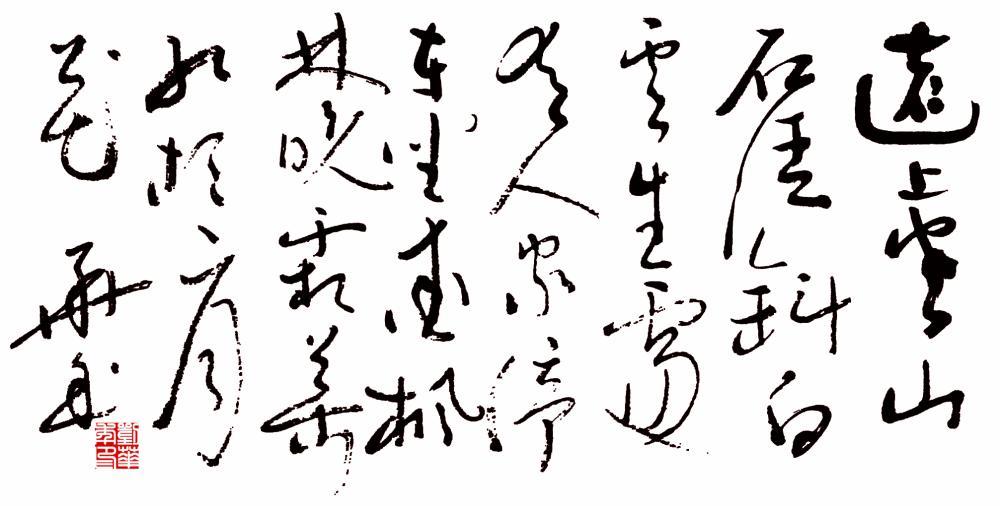 遠上寒山
石徑斜白
雲生處
有人家停
车坐愛楓
林晚霜葉
紅於二月
花 书
劉華